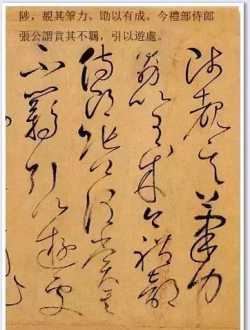 陟，覩其筆力，勖以有成。今禮部侍郎
張公謂賞其不羈，引以遊處。
陟覩其筆力
勖以有成今禮部
侍郎張公謂賞其
不羈引以遊處